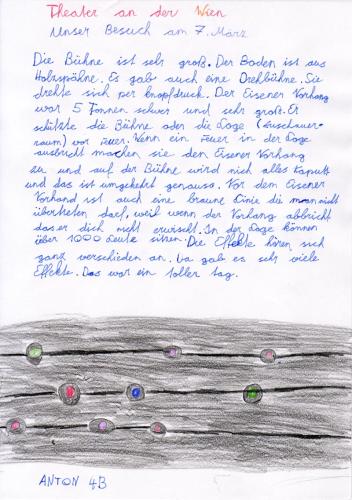 Theater an der Wien
Unser Besuch am 7. März
Die Bühne ist sehr groß. Der Boden ist aus
Holzspähne. Es gab auch eine Drehbühne. Sie
drehte sich per knopfdruck. Der Eisener Vorhang
war 5 Tonnen schwer und sehr groß. Er
schützte die Bühne oder die Loge (Zuschauer-
raum) vor Feuer. Wenn ein Feuer in der Loge
ausbricht machen sie den Eisener Vorhang
zu und auf der Bühne wird nich alles Kaputt
und das ist umgekehrt genauso. Vor dem Eisener
Vorhand ist auch eine braune Linie die man nicht
übertreten darf, weil wenn der Vorhang abbricht
das er dich nicht erwischt. In der Loge können
über 1000 Leute sitzen. Die Effekte hören sich
ganz verschieden an. Da gab es sehr viele
Effekte. Das war ein toller tag.
ANTON 4B